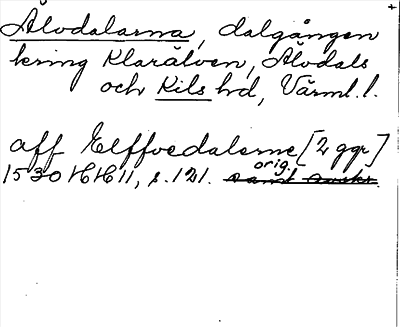 Älvdalarna, dalgången
kring Klarälven, Älvdals
och Kils hd, Värml. l.
aff Elffvedalerne [2 ggr]
1530 HH 11, s. 121. orig.